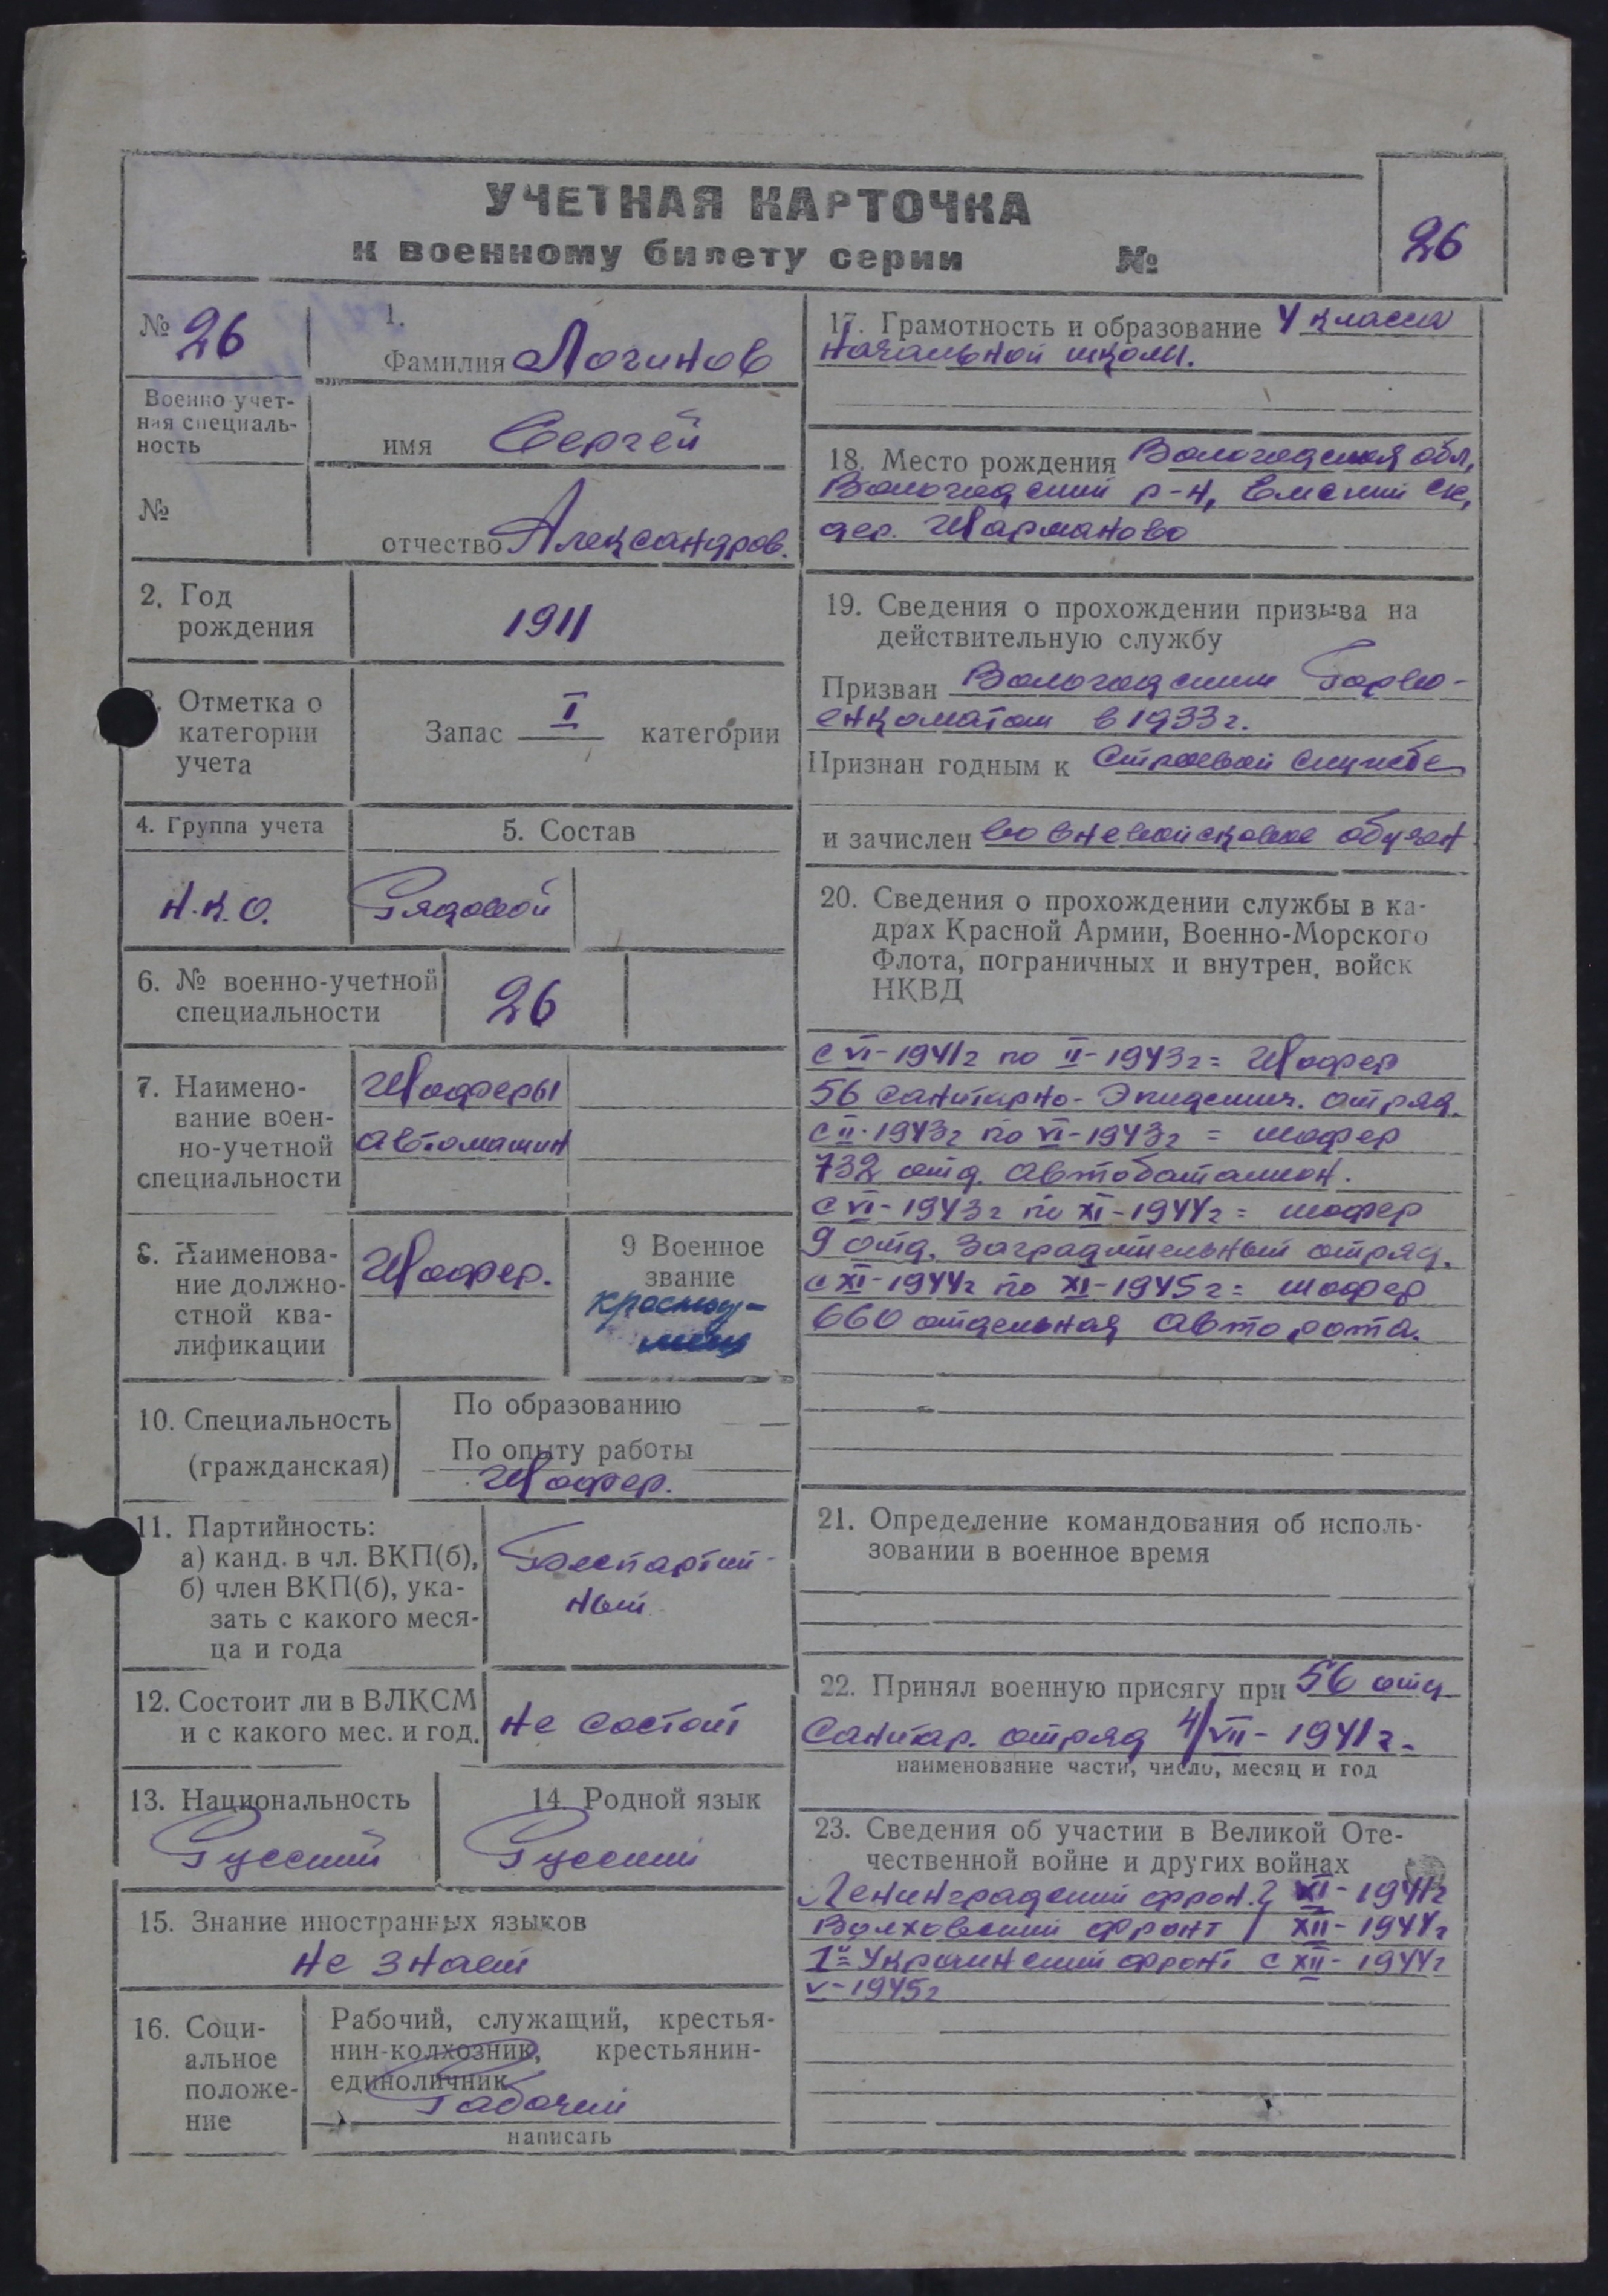 УЧЕТНАЯ КАРТОЧКА
к военному билету серии №
26
№ 26
1.
Фамилия Логинов
Военно учет-
ная специаль-
ность
имя Сергей
№
отчество Александров.
2. Год
рождения
1911
3. Отметка о
категории
учета
Запас I категории
4. Группа учета
5. Состав
Н.К.О.
Рядовой
6. № военно-учетной
специальности
26
7. Наимено-
вание воен-
но-учетной
специальности
Шоферы
автомашин
8. Наименова-
ние должно-
стной ква-
лификации
Шофер.
9 Военное
звание
красноар-
меец
10. Специальность
(гражданская)
По образованию —
По опыту работы
Шофер.
11. Партийность:
а) канд. в чл. ВКП(б),
б) член ВКП(б), ука-
зать с какого меся-
ца и года
Беспартий-
ный
12. Состоит ли в ВЛКСМ
и с какого мес. и год.
Не состоит
13. Национальность
Русский
14. Родной язык
Русский
15. Знание иностранных языков
Не знает
16. Соци-
альное
положе-
ние
Рабочий, служащий, крестья-
нин-колхозник, крестьянин-
единоличник
Рабочий
написать
17. Грамотность и образование 4 класса
начальной школы.
18. Место рождения Вологодская обл,
Вологодский р-н, ск,
дер. Шарманово
19. Сведения о прохождении призыва на
действительную службу
Призван Вологодским Горво-
енкоматом в 1933г.
Признан годным к строевой службе
и зачислен во вневойсковое обучен
20. Сведения о прохождении службы в ка-
драх Красной Армии, Военно-Морского
Флота, пограничных и внутрен. войск
НКВД
с VI-1941г по II-1943г = Шофер
56 санитарно-Эпидемич. отряд.
с II-1943г по VI-1943г = шофер
732 отд. автобатальон.
с VI-1943г по XI-1944г = шофер
9 отд. Заградительный отряд.
с XI-1944г по XI-1945г = шофер
660 отдельная авторота.
21. Определение командования об исполь-
зовании в военное время
22. Принял военную присягу при 56 отд
Санитар. отряд 4/VII-1941г.
наименование части, число, месяц и год
23. Сведения об участии в Великой Оте-
чественной войне и других войнах
Ленинградский фрон. VI-1941г
Волховский фронт XII-1944г
1й Украинский фронт с XII-1944г
V-1945г